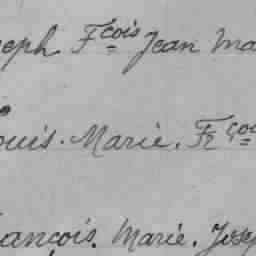 seph Fçois Jean Ma
ouis. Marie. Frço
ançois. Marie. Josep